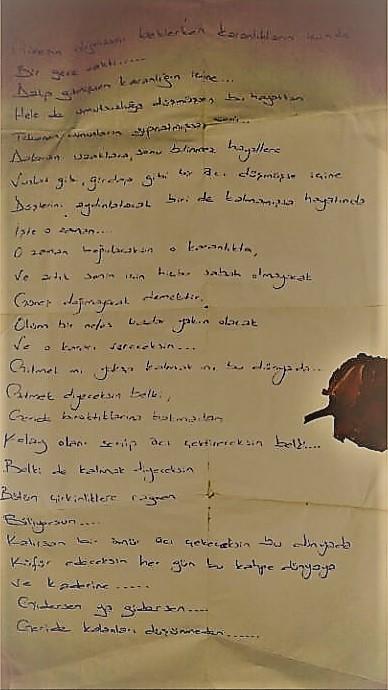 doğmasını beklerken karanlıkların içinde
Bir gece vakti......
Dalıp gitmişsen karanlığın içine...
Hele de umutsuzluğa düşmüşsen bu hayattan
Dalarsın uzaklara, sonu bilinmez hayallere
gibi, girdap gibi bir acı düşmüşse içine
aydınlatacak biri de kalmamışsa hayatında
İşte o zaman....
O zaman boğulacaksın o karanlıkta,
Ve artık senin için hiçbir sabah olmayacak
Güneş doğmayacak demektir.
Ölüm bir nefes kadar yakın olacak
Ve o kararı vereceksin...
Gitmek mi yoksa kalmak mı bu dünyada...
Gitmek diyeceksin belki,
Geride bıraktıklarına bakmadan
Kolay olanı seçip acı çektireceksin belki....
Belki de kalmak diyeceksin
Bütün çirkinliklere rağmen
Biliyorsun....
Kalırsan bir ömür acı çekeceksin bu dünyada
Küfür edeceksin her gün bu kahpe dünyaya
Ve kaderine ......
Gidersen ya gidersen....
Geride kalanları düşünmeden......